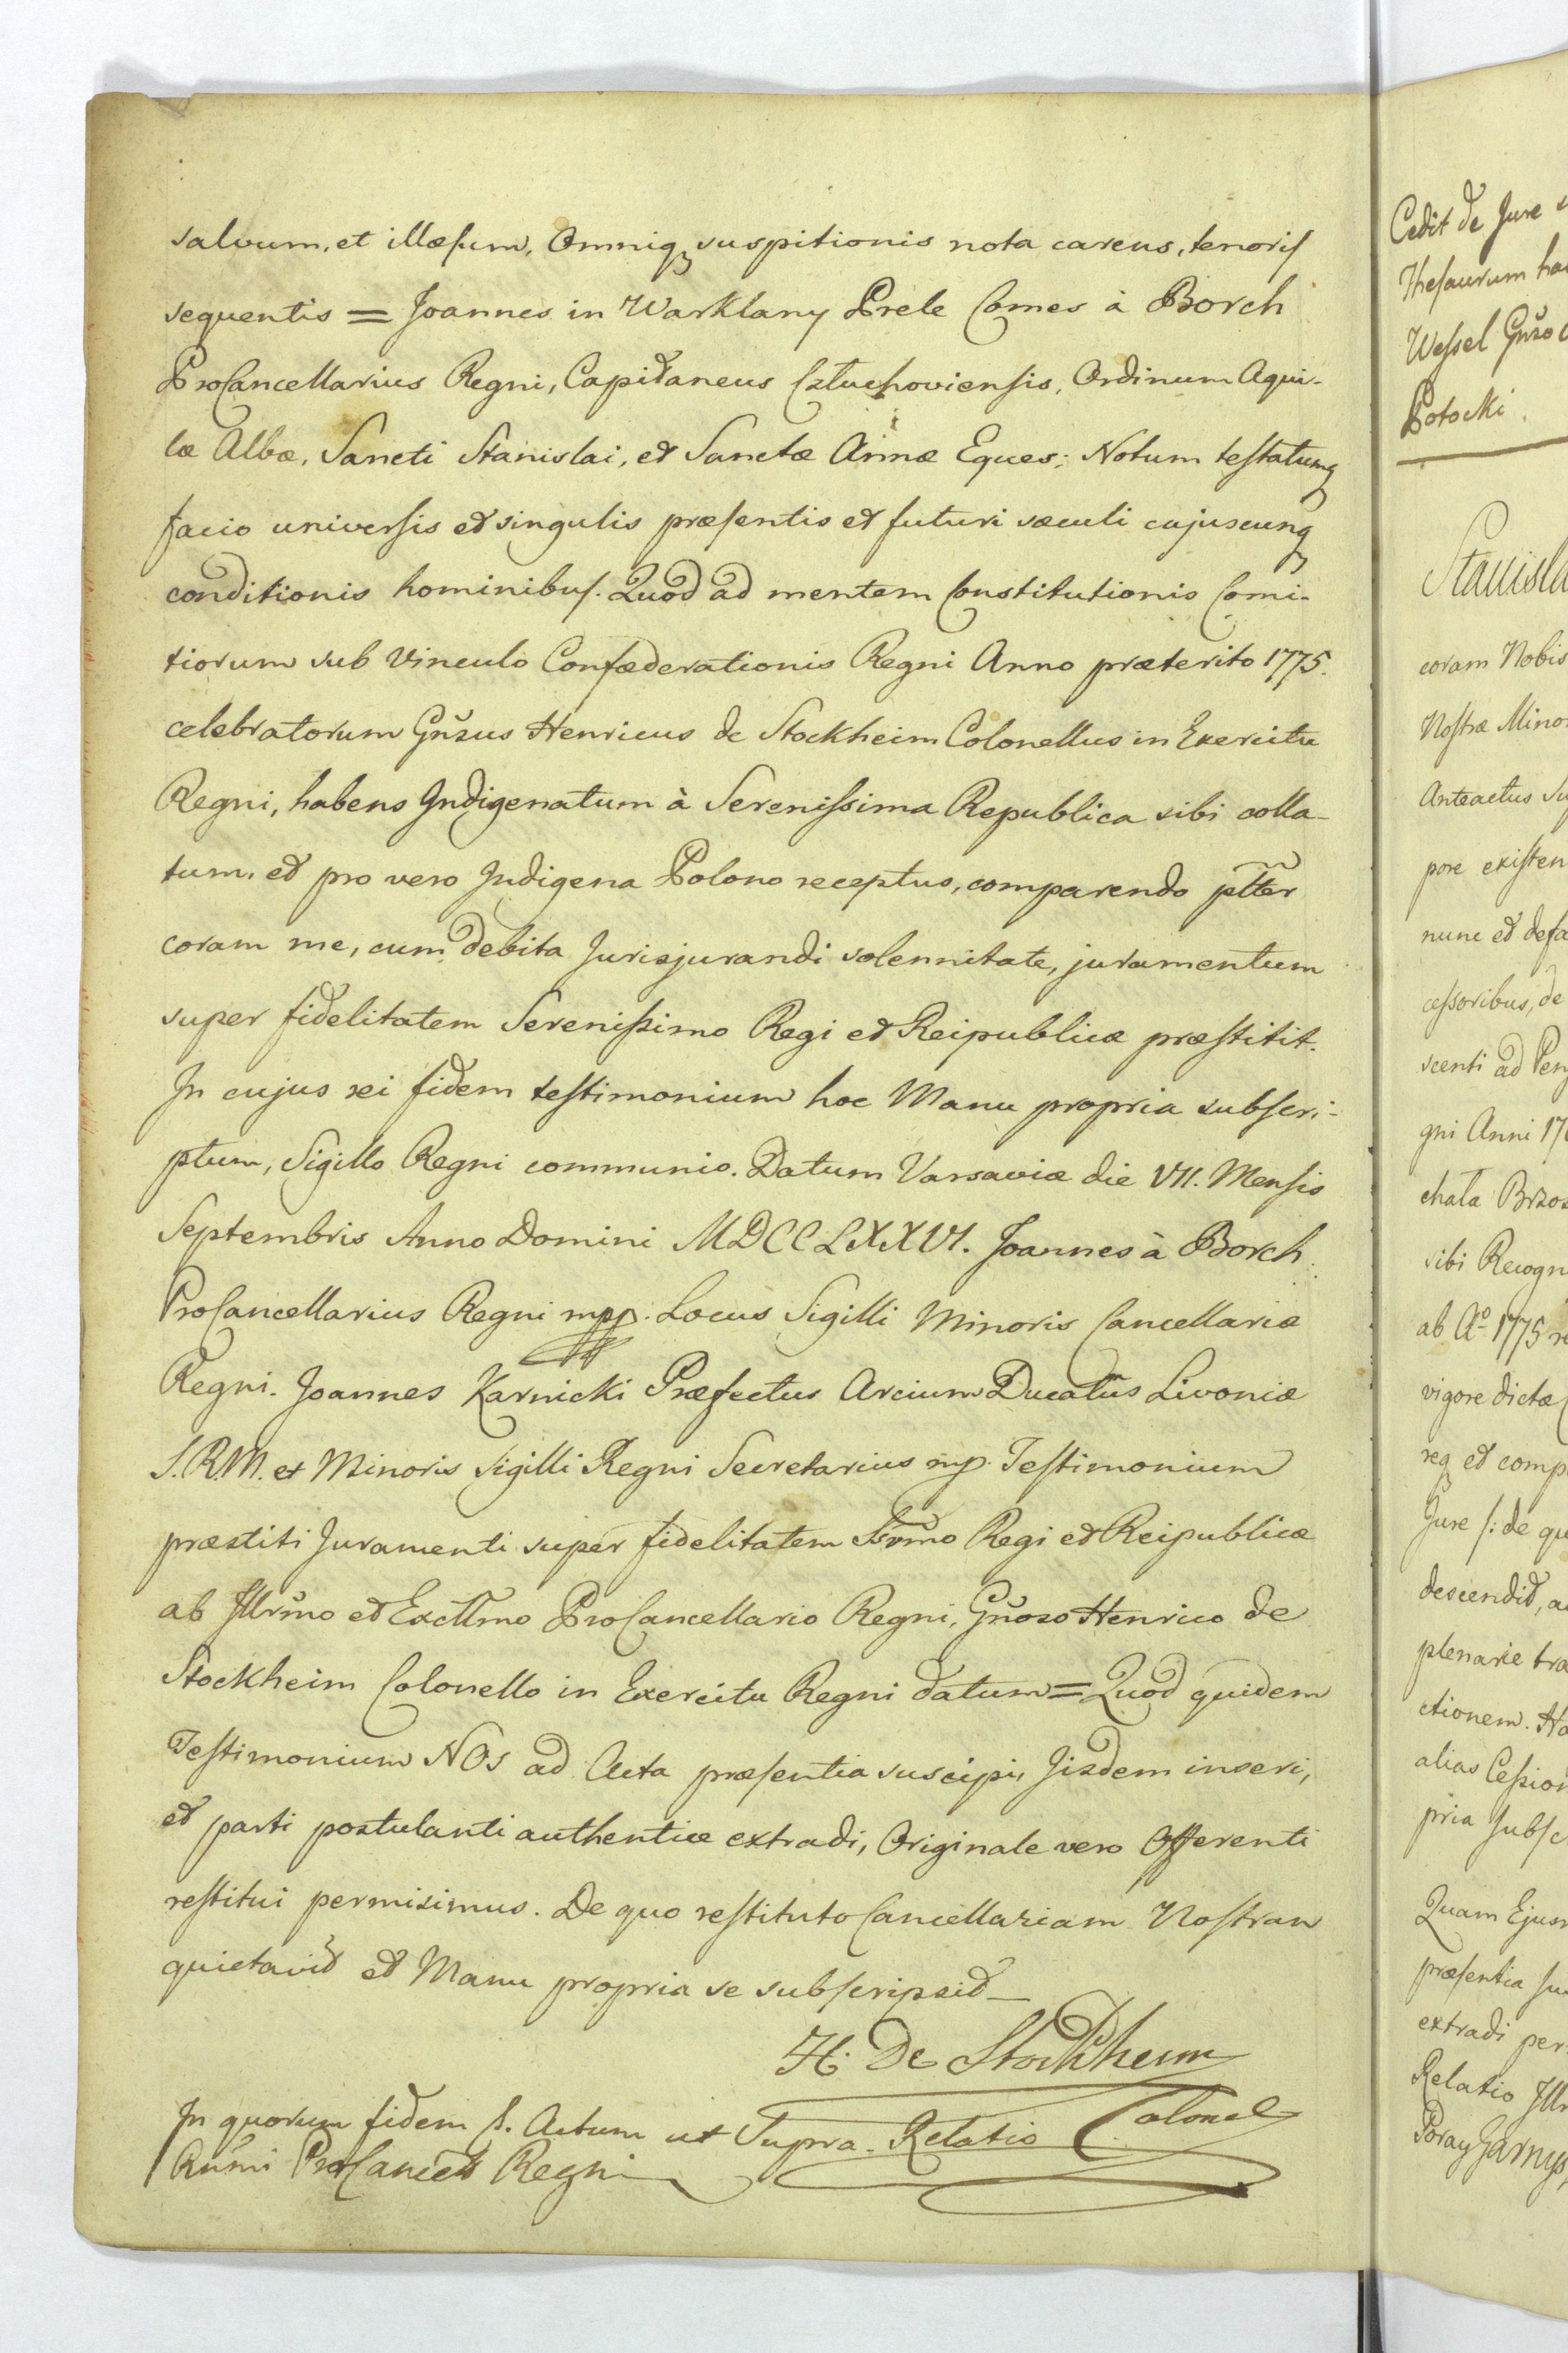 salvum, et illæsum, Omniq suspitionis nota carens, tenoris
sequentis = Joannes in Warklany Prele Comes à Borch
ProCancellarius Regni, Capitaneus Człuchoviensis, Ordinum Aqui-
læ Albæ, Sancti Stanislai, et Sanctæ Annæ Eques; Notum testatumq
facio universis et singulis præsentis et futuri sæculi cujuscunq
conditionis hominibus. Quod ad mentem Constitutionis Comi-
tiorum sub Vinculo Confæderationis Regni Anno præterito 1775.
celebratorum Gñsus Henricus de Stockheim Colonellus in Exercitu
Regni, habens Indigenatum à Serenissima Republica sibi colla-
tum, et pro vero Indigena Polono receptus, comparendo pltter
coram me, cum debita Jurisjurandi solennitate, juramentum
super fidelitatem Serenissimo Regi et Reipublicæ præstitit.
In cujus rei fidem testimonium hoc Manu propria subscri-
ptum, Sigillo Regni communio. Datum Varsaviæ die VII. Mensis
Septembris Anno Domini MDCCLXXVI. Joannes à Borch
ProCancellarius Regni mpp. Locus Sigilli Minoris Cancellariæ
Regni. Joannes Karnicki Præfectus Arcium Ducatûs Livoniæ
S.R.M. et Minoris Sigilli Regni Secretarius mp. Testimonium
præstiti Juramenti super fidelitatem Srmo Regi et Reipublicæ
ab Illrmo et Excllmo ProCancellario Regni, Gñoso Henrico de
Stockheim Colonello in Exercitu Regni datum = Quod quidem
Testimonium NOs ad Acta præsentia suscipi, Iisdem inseri,
et parti postulanti authentice extradi, Originale vero Offerenti
restitui permisimus. De quo restituto Cancellariam Nostram
quietavit et Manu propria se subscripsit
H. De Stockheim
Colonel
In quorum fidem S. Actum ut Supra. Relatio
ProCancell Regni
Cedit de Jure
Thesaurum
Wessel Gñso
Potocki.
Stanisla
coram Nobis
Nostræ Mino
Anteactus
pore existen
nunc et defa
cessoribus, de
scenti ad Pen
gni Anni 17
chała Brzos
sibi Recogn
ab Ao 1775
vigore dictæ
req et comp
Jure /: de qu
descendit, a
plenarie tra
ctionem. Ha
alias Cession
pria subsc
Quam Ejus
præsentia su
extradi per
Relatio Illr
Poray Garnys